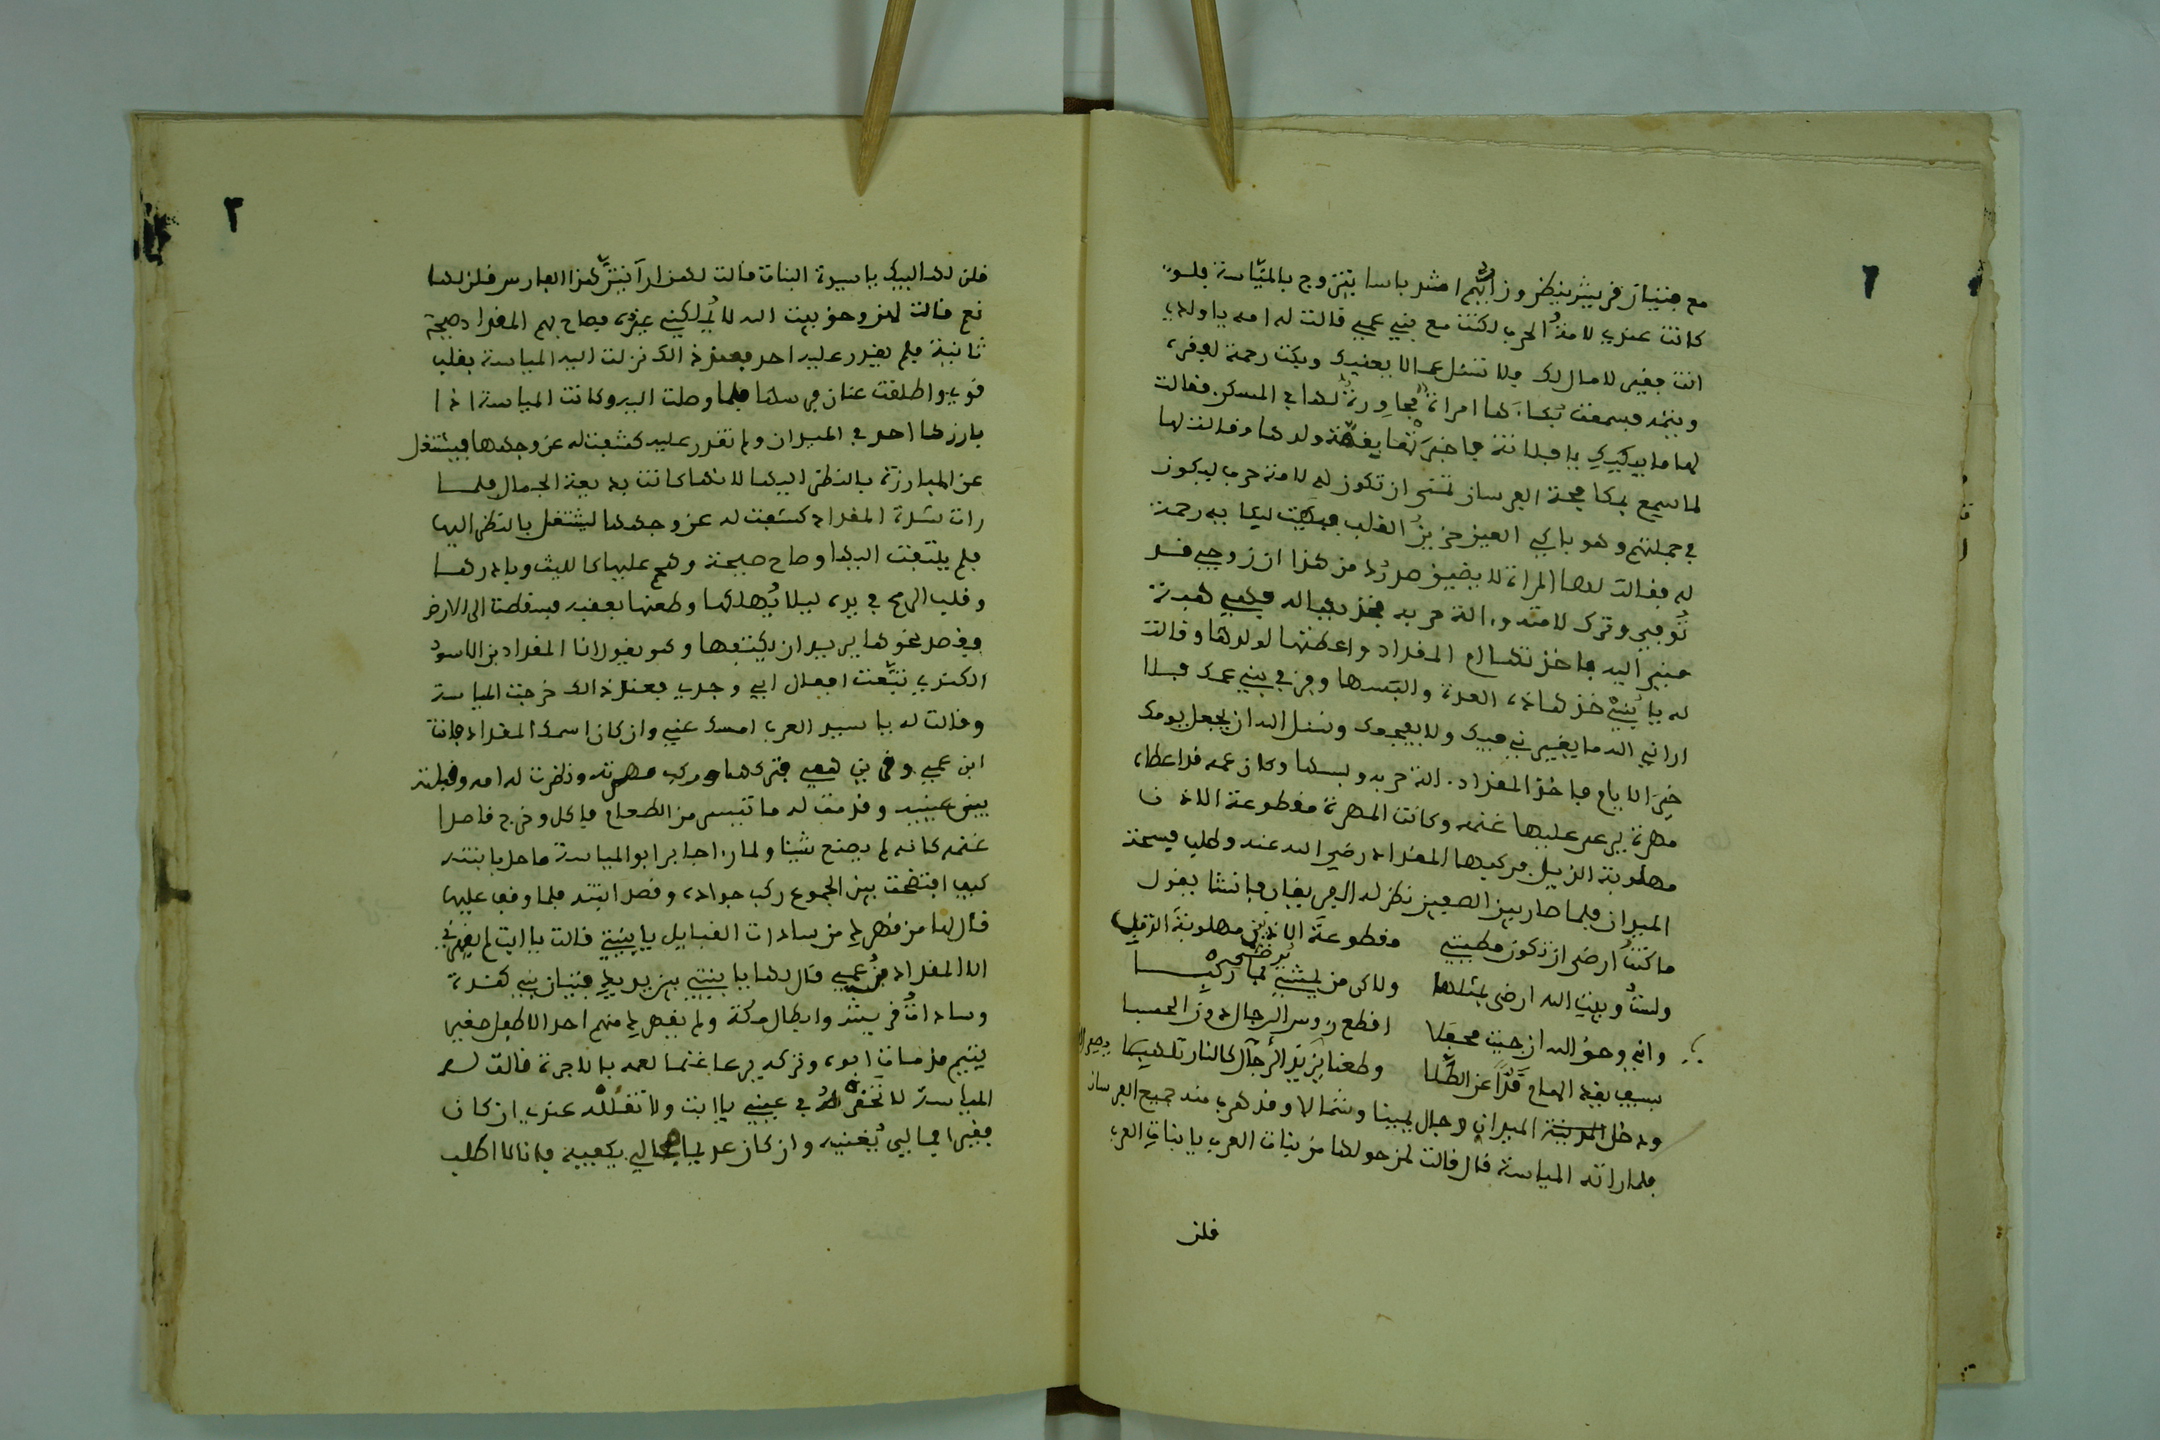 مع فتيان قريش ينظرون ايهم اشد باسا يتزوج بالمياسة فلو
كانت عندي لامة الحرب لكنت مع بني عمي قالت له امه يا ولدي
انت فقير لا مال لك فلا تسئل عما لا يعنيك وبكت رحمة لفقره
ويتمه فسمعت بكاءها امراة مجاورة لها في المسكن فقالت
لها ما يبكيك يا فلانة فاخبرتها بقصة ولدها وقالت لها
لما سمع بمكافحة الفرسان تمنى ان تكون له لامة حرب ليكون
في جملتهم وهو باكي العين حزين القلب فبكيت لبكا به رحمة
له فقالت لها المراة لا يضيق صدرك من هذا ان زوجي قد
توفي وترك لامته والة حربه فخذيها له فهي هدية
مني اليه فاخذتها ام المقداد واعطتها لولدها وقالت
له يا بني خذ هاذه العدة والبسها وقف في بني عمك فلا
اراني الله ما يغيرني فيك ولا يفجعك ونسئل الله ان يجعل يومك
خير الايام فاخذ المقداد الة حربه ولبسها وكان عمه قد اعطاه
مهرة يرعى عليها غنمه وكانت المهرة مقطوعة الاذن
مهلوبة الذيل فركبها المقداد رضي الله عنه وطلب فسحة
الميدان فلما صار بين الصفين نظر له الفريقان فانشا يقول
ما كنت ارضى ان تكون مطيتي مقطوعة الاذنين مهلوبة الذيل
ولست وبيت الله ارضى بمثلها ولاكن من لم يرضى بمشي بما ركبا
واني وحق الله ان جيت محفلا اقطع روس الرجال ذوي الحسبا
بسيف يقد الهام قدا عن الطلا وطعنا يزيد الرجال كالنار تلهبها
ودخل الميدان وجال يمينا وشمالا وقد هرب منه جميع الفرسان
فلما راته المياسة قال قالت لمن حولها من بنات العرب يا بنات العرب
قلن
٢
قلن لها لبيك يا سيدة البنات قالت لهن ارايتن هذا الفارس قلن لها
نعم قالت لهن وحق بيت الله لا يملكني غيره فصاح بهم المقداد صيحة
ثانية فلم يقدر عليه احد فعند ذالك نزلت اليه المياسة بقلب
قوي واطلقت عنان فرسها فلما وصلت اليه وكانت المياسة اذا
بارزها احد في الميدان ولم تقدر عليه كشفت له عن وجهها فيشتغل
عن المبارزة بالنظر اليها لانها كانت بديعة الجمال فلما
رات شدة المقداد كشفت له عن وجهها ليشتغل بالنظر اليها
فلم يلتفت اليها وصاح صيحة وهجم عليها كالليث وبادرها
وقلب الرمح في يده ليلا يهلكها وطعنها بعقبه فسقطت الى الارض
وقصد نحوها يريد ان يكتفها وهو يقول انا المقداد بن الاسود
الكندي تتبعت افعال ابي وجدي فعند ذالك خرجت المياسة
وقالت له يا سيد العرب امسك عني وان كان اسمك المقداد فانت
ابن عمي فتركها وركب مهرته ونظرت له امه وقبلته
بين عينيه وقدمت له ما تيسر من الطعام فاكل وخرج قاصدا
غنمه كانه لم يصنع شيئا ولما را جابر ابو المياسة ما حل بابنته
كيف افتضحت بين الجموع ركب جواده وقصد ابنته فلما وقف عليها
قال لها من قهرك من سادات القبايل يا بنيتي قالت يا ابت لم يقهرني
الا المقداد بن عمي قال لها يا بنيتي بين يديك فتيان بني كندة
وسادات قريش وابطال مكة ولم يقهرك منهم احد الا طفل صغير
يتيم قد مات ابوه وتركه يرعا غنما لعمه بالاجرة قالت له
المياسة لا تحقره في عيني يا ابت ولا تقلله عندي ان كان
فقيرا فمالي يغنيه وان كان عديما فمالي يكفيه فانا لا اطلب